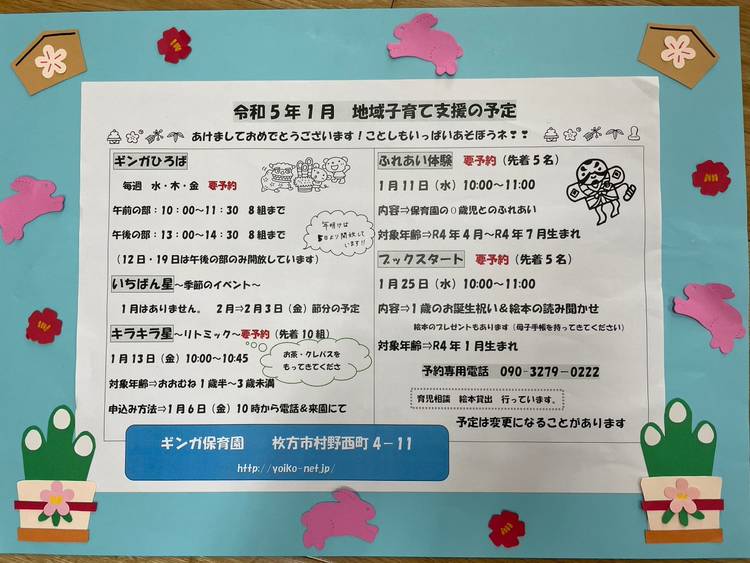 令和5年1月 地域子育て支援の予定
あけましておめでとうございます!ことしもいっぱいあそぼうネ❢❢
ギンガひろば
毎週 水・木・金 要予約
午前の部:10:00~11:30 8組まで
午後の部:13:00~14:30 8組まで
(12日・19日は午後の部のみ開放しています)
年明けは
5日より開放して
います!!
いちばん星~季節のイベント~
1月はありません。 2月⇒2月3日(金)節分の予定
キラキラ星~リトミック~要予約(先着10組)
1月13日(金)10:00~10:45
お茶・クレパスを
もってきてくださ
対象年齢⇒おおむね1歳半~3歳未満
申込み方法⇒1月6日(金)10時から電話&来園にて
ふれあい体験 要予約(先着5名)
1月11日(水)10:00~11:00
内容⇒保育園の0歳児とのふれあい
対象年齢⇒R4年4月~R4年7月生まれ
ブックスタート 要予約(先着5名)
1月25日(水)10:00~11:00
内容⇒1歳のお誕生祝い&絵本の読み聞かせ
絵本のプレゼントもあります(母子手帳を持ってきてください)
対象年齢⇒R4年1月生まれ
予約専用電話 090-3279-0222
育児相談 絵本貸出 行っています。
予定は変更になることがあります
ギンガ保育園 枚方市村野西町4-11
http://yoiko-net.jp/